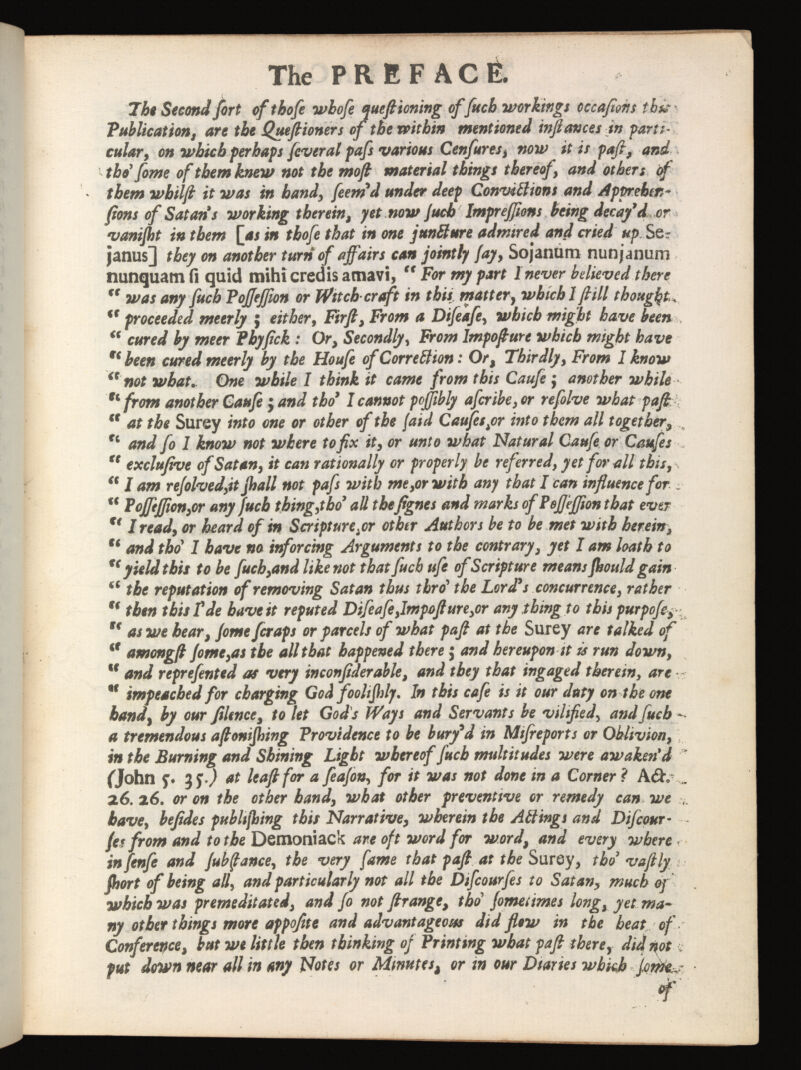 The PREFACE.
The Second ſort of thoſe whoſe queſtioning of ſuch workings occaſions this
Publication, are the Queſtioners of the within mentioned inſtances in parti-
cular, on which perhaps ſeveral paſs various Cenſures, now it is paſt, and
tho' ſome of them knew not the moſt material things thereof, and others of
them whilſt it was in hand, ſeem'd under deep Convictions and Apprehen-
ſions of Satan's working therein, yet now ſuch Impreſſions being decay'd or
vaniſht in them [as in thoſe that in one juncture admired and cried up Se-
janus] they on another turn of affairs can jointly ſay, Sojanum nunjanum
nunquam ſi quid mihi credis amavi, “ For my part I never believed there
“ was any ſuch Poſſeſſion or Witch-craft in this matter, which I ſtill thought
“ proceeded meerly ; either, Firſt, From a Diſeaſe, which might have been
“ cured by meer Phyſick : Or, Secondly, From Impoſture which might have
“ been cured meerly by the Houſe of Correction : Or, Thirdly, From I know
“ not what. One while I think it came from this Cauſe ; another while
“ from another Cauſe ; and tho' I cannot poſſibly aſcribe, or reſolve what paſt
“ at the Surey into one or other of the ſaid Cauſes, or into them all together,
“ and ſo I know not where to fix it, or unto what Natural Cauſe or Cauſes
“ excluſive of Satan, it can rationally or properly be referred, yet for all this,
“ I am reſolved, it ſhall not paſs with me, or with any that I can influence for
“ Poſſeſſion, or any ſuch thing, tho' all the ſignes and marks of Poſſeſſion that ever
“ I read, or heard of in Scripture, or other Authors be to be met with herein,
“ and tho' I have no inforcing Arguments to the contrary, yet I am loath to
“ yield this to be ſuch, and like not that ſuch uſe of Scripture means ſhould gain
“ the reputation of removing Satan thus thro' the Lord's concurrence, rather
“ then this I'de have it reputed Diſeaſe, Impoſture, or any thing to this purpoſe,
“ as we hear, ſome ſcraps or parcels of what paſt at the Surey are talked of
“ amongſt ſome, as the all that happened there ; and hereupon it is run down,
“ and repreſented as very inconſiderable, and they that ingaged therein, are
“ impeached for charging God fooliſhly. In this caſe is it our duty on the one
hand, by our ſilence, to let God's Ways and Servants be vilified, and ſuch
a tremendous aſtoniſhing Providence to be bury'd in Miſreports or Oblivion,
in the Burning and Shining Light whereof ſuch multitudes were awaken'd
(John 5. 35.) at leaſt for a ſeaſon, for it was not done in a Corner ? Act.
26. 26. or on the other hand, what other preventive or remedy can we
have, beſides publiſhing this Narrative, wherein the Actings and Diſcour-
ſes from and to the Demoniack are oft word for word, and every where
in ſenſe and ſubſtance, the very ſame that paſt at the Surey, tho' vaſtly
ſhort of being all, and particularly not all the Diſcourſes to Satan, much of
which was premeditated, and ſo not ſtrange, tho' ſometimes long, yet ma-
ny other things more appoſite and advantageous did flow in the heat of
Conference, but we little then thinking of Printing what paſt there, did not
put down near all in any Notes or Minutes, or in our Diaries which ſome
of